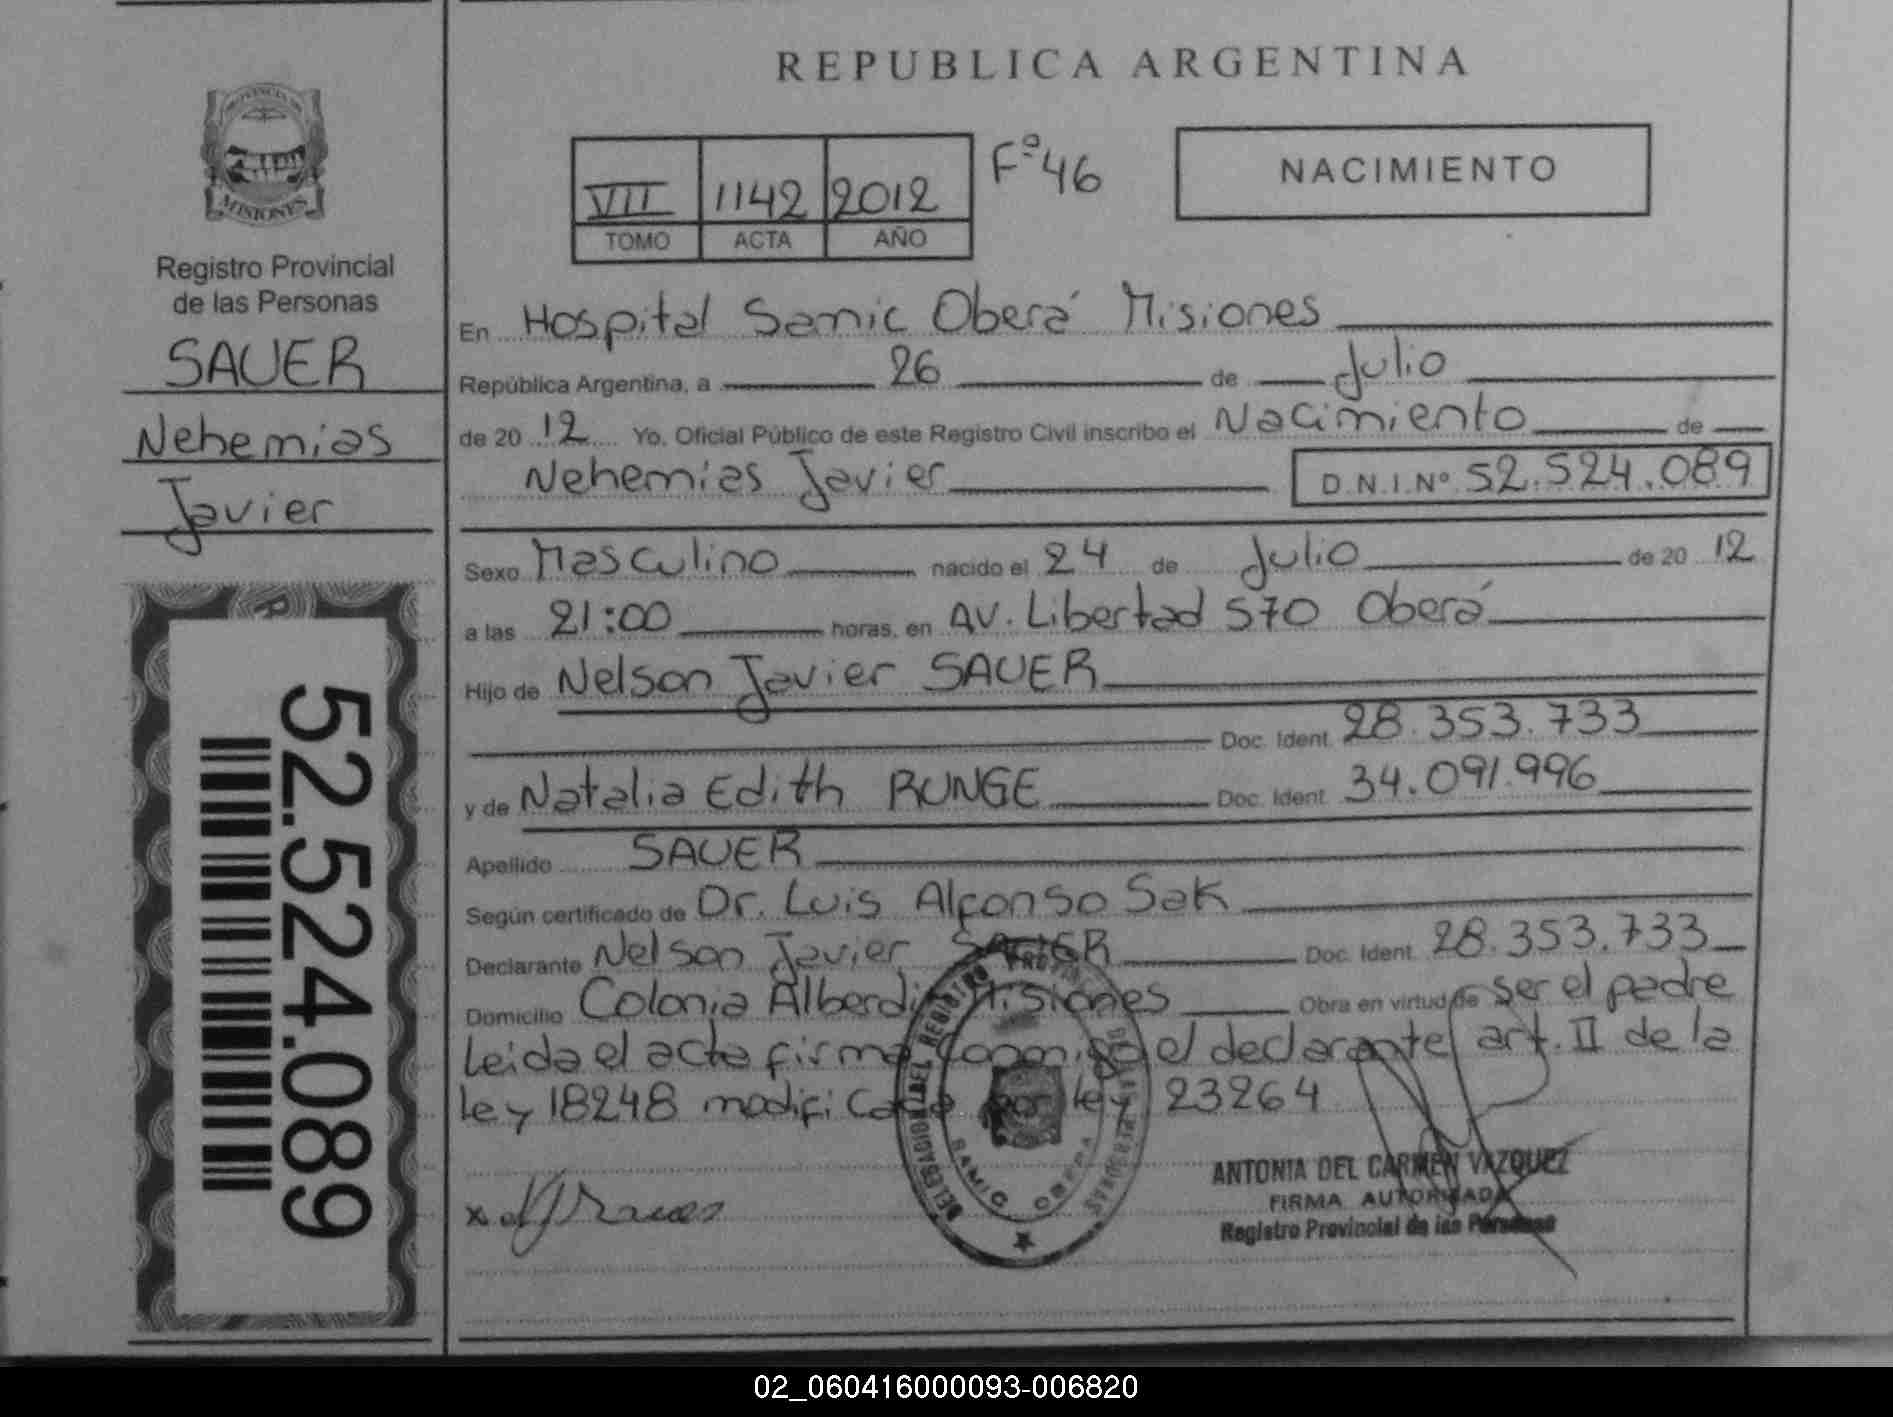 REPUBLICA ARGENTINA
PROVINCIA DE
MISIONES
Registro Provincial
de las Personas
SAUER
Nehemias
Javier
52.524.089
VII 1142 2012 Fº46
TOMO ACTA AÑO
NACIMIENTO
En Hospital Samic Oberá Misiones
República Argentina, a 26 de Julio
de 20 12 Yo, Oficial Público de este Registro Civil inscribo el Nacimiento de
Nehemias Javier D.N.I.Nº 52.524.089
Sexo Masculino nacido el 24 de Julio de 20 12
a las 21:00 horas, en AV. Libertad 570 Oberá
Hijo de Nelson Javier SAUER
Doc. Ident. 28.353.733
y de Natalia Edith RUNGE Doc. Ident. 34.091.996
Apellido SAUER
Según certificado de Dr. Luis Alfonso Sak
Declarante Nelson Javier SAUER Doc. Ident. 28.353.733
Domicilio Colonia Alberdi Misiones Obra en virtud de ser el padre
Leida el acta firma conmigo el declarante art. II de la
ley 18248 modificada por ley 23264
x
DELEGACION DEL REGISTRO PROVINCIAL DE LAS PERSONAS
SAMIC OBERA
ANTONIA DEL CARMEN VAZQUEZ
FIRMA AUTORIZADA
Registro Provincial de las Personas
02_060416000093-006820